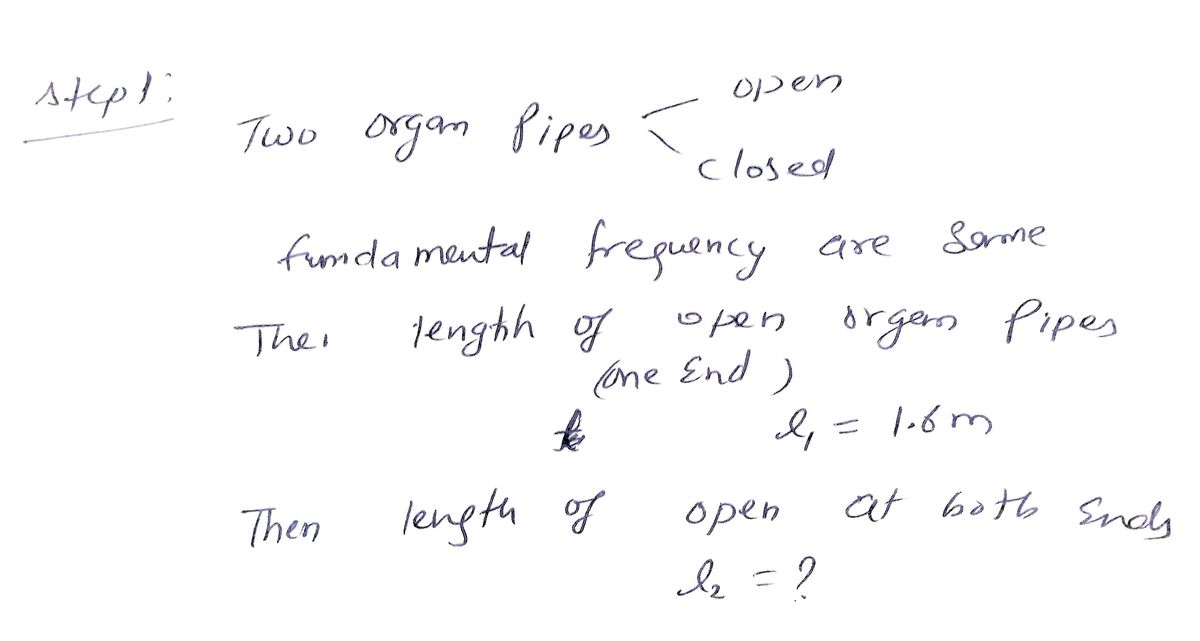 step 1:
Two organ Pipes < open
closed
fundamental frequency are same
The length of open organ Pipes
(one End)
l₁ = 1.6 m
Then length of open at both Ends
l₂ = ?